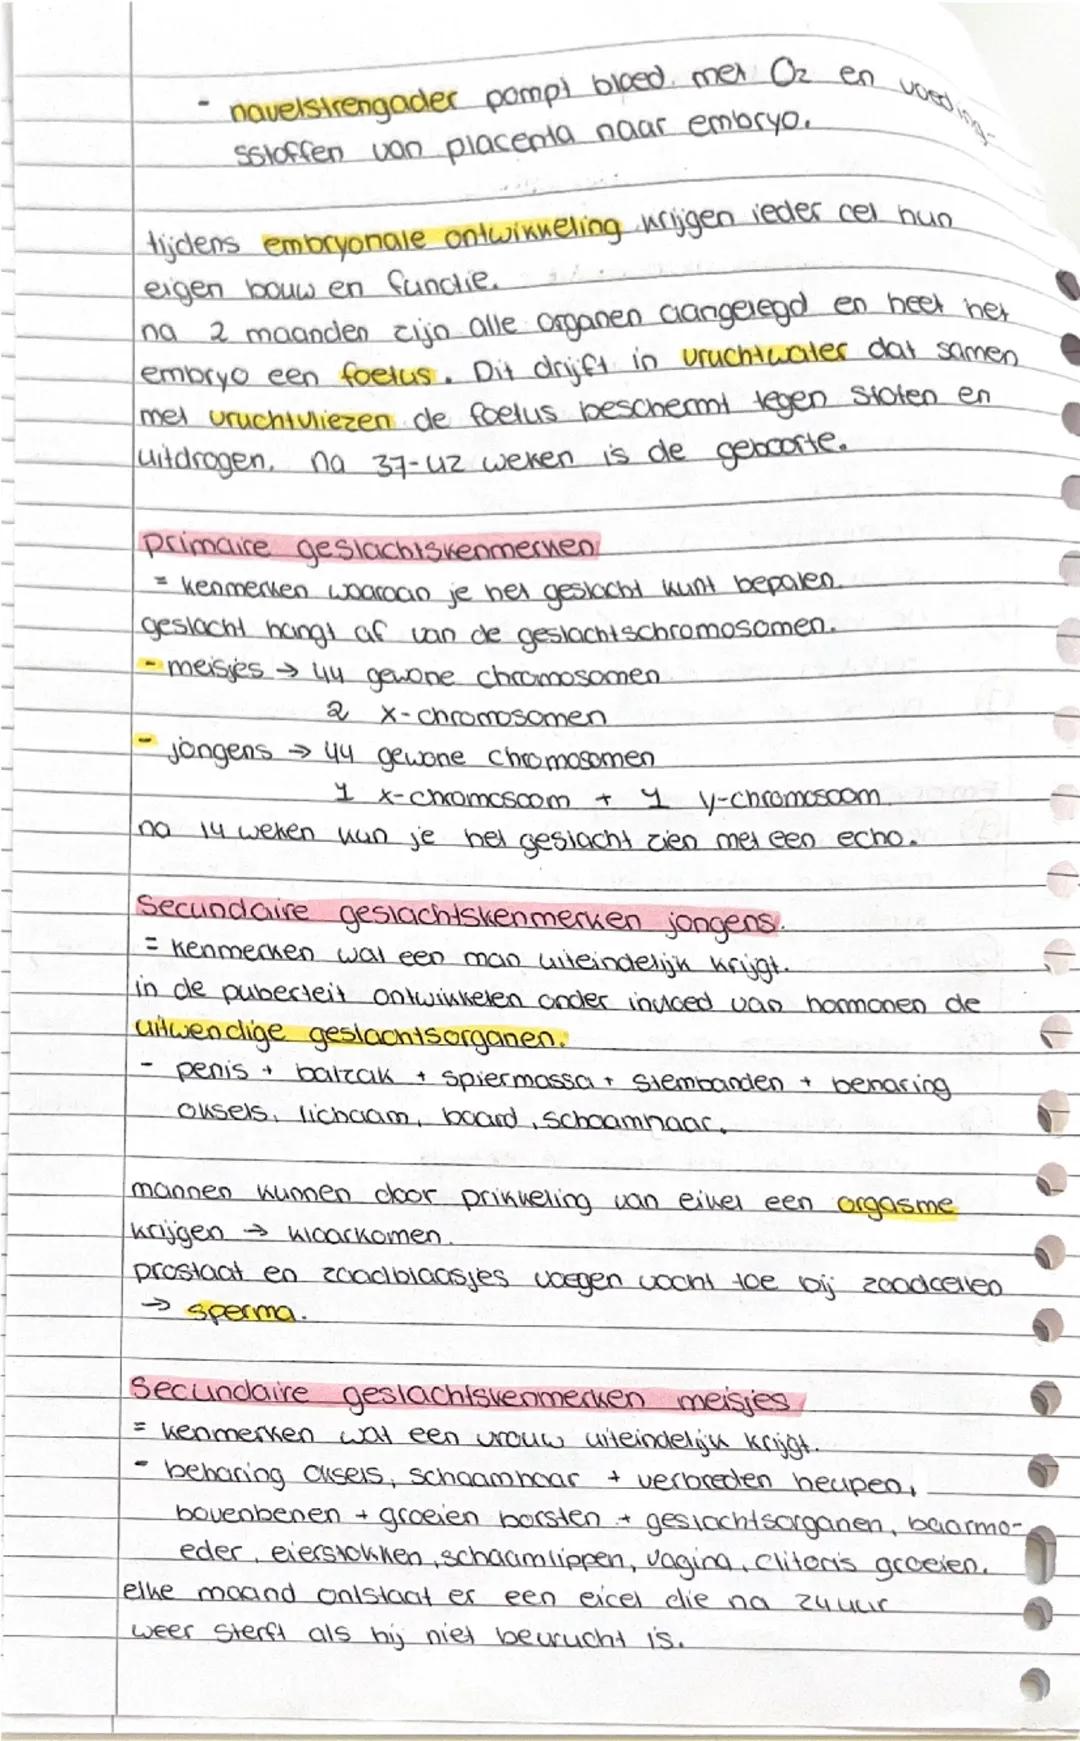 - navelstrengader pompt bloed met O2 en voeding-
sstoffen van placenta naar embryo.
tijdens embryonale ontwikkeling krijgen ieder cel hun
eigen bouw en functie.
na 2 maanden zijn alle organen aangelegd en heet het
embryo een foetus. Dit drijft in vruchtwater dat samen
met vruchtvliezen de foetus beschermt tegen stoten en
uitdrogen. na 37-42 weken is de geboorte.
primaire geslachtskenmerken
= kenmerken waaraan je het geslacht kunt bepalen.
geslacht hangt af van de geslachtschromosomen.
- meisjes → 44 gewone chromosomen
2 x-chromosomen
- jongens → 44 gewone chromosomen
1 x-chromosoom + 1 y-chromosoom
na 14 weken kun je het geslacht zien met een echo.
Secundaire geslachtskenmerken jongens.
= kenmerken wat een man uiteindelijk krijgt.
in de puberteit ontwikkelen onder invloed van hormonen de
uitwendige geslachtsorganen.
- penis + balzak + spiermassa + stembanden + beharing
oksels, lichaam, baard, schaamhaar.
mannen kunnen door prikkeling van eikel een orgasme
krijgen → klaarkomen.
prostaat en zaadblaasjes voegen vocht toe bij zaadcellen
→ sperma.
Secundaire geslachtskenmerken meisjes
= kenmerken wat een vrouw uiteindelijk krijgt.
- beharing oksels, schaamhaar + verbreden heupen,
bovenbenen + groeien borsten + geslachtsorganen, baarmo-
eder, eierstokken, schaamlippen, vagina, clitoris groeien.
elke maand ontstaat er een eicel die na 24 uur
weer sterft als hij niet bevrucht is.